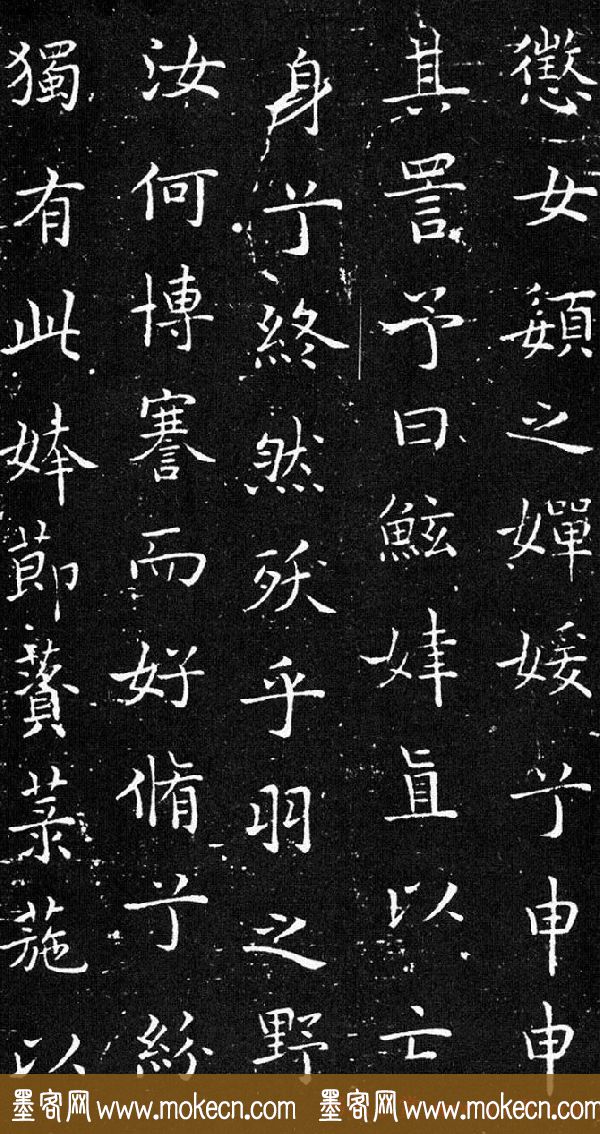 懲女嬃之嬋媛兮申申
其詈予曰鮌婞直以亡
身兮終然殀乎羽之野
汝何博謇而好脩兮紛
獨有此姱節薋菉葹以
墨客网 www.mokecn.com 墨客网 www.mokecn.com